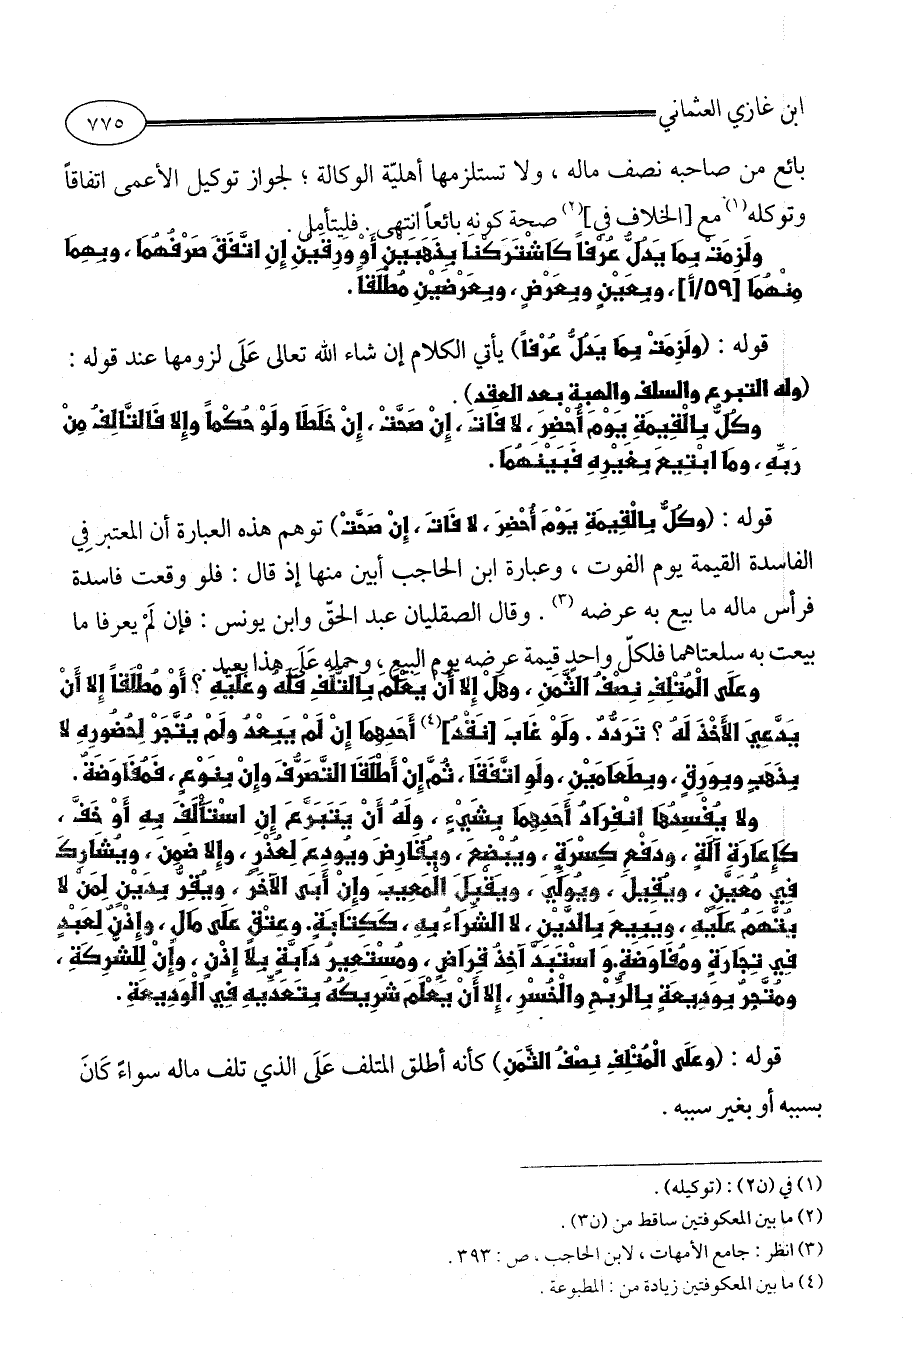 ابن غازي العثماني
٧٧٥
بائع من صاحبه نصف ماله ، ولا تستلزمها أهليّة الوكالة ؛ لجواز توكيل الأعمى اتفاقاً
وتوكله(١) مع [الخلاف في](٢) صحة كونه بائعاً انتهى . فليتأمل .
ولَزِمَتْ بِمَا يَدُلُّ عُرْفاً كَاشْتَرَكْنَا بِذَهَبَيْنِ أَوْ ورِقَيْنِ إِنِ اتَّفَقَ صَرْفُهُمَا ، وبِهِمَا
مِنْهُمَا [٥٩/أ] ، وبِعَيْنٍ وبِعَرْضٍ ، وبِعَرْضَيْنِ مُطْلَقاً .
قوله : (ولَزِمَتْ بِمَا يَدُلُّ عُرْفاً) يأتي الكلام إن شاء الله تعالى عَلَى لزومها عند قوله :
(وله التبرع والسلف والهبة بعد العقد) .
وكُلٌّ بِالْقِيمَةِ يَوْمَ أُحْضِرَ ، لا فَاتَ ، إِنْ صَحَّتْ ، إِنْ خَلَطَا ولَوْ حُكْماً وإِلا فَالتَّالِفُ مِنْ
رَبِّهِ ، ومَا ابْتِيعَ بِغَيْرِهِ فَبَيْنَهُمَا .
قوله : (وكُلٌّ بِالْقِيمَةِ يَوْمَ أُحْضِرَ ، لا فَاتَ ، إِنْ صَحَّتْ) توهم هذه العبارة أن المعتبر فِي
الفاسدة القيمة يوم الفوت ، وعبارة ابن الحاجب أبين منها إذ قال : فلو وقعت فاسدة
فرأس ماله ما بيع به عرضه (٣) . وقال الصقليان عبد الحقّ وابن يونس : فإن لَمْ يعرفا ما
بيعت به سلعتاهما فلكلّ واحدٍ قيمة عرضه يوم البيع ، وحمله عَلَى هذا بعيد .
وعَلَى الْمُتْلِفِ نِصْفُ الثَّمَنِ ، وهَلْ إِلا أَنْ يَعْلَمَ بِالتَّلَفِ فَلَهُ وعَلَيْهِ ؟ أَوْ مُطْلَقاً إِلا أَنْ
يَدَّعِيَ الأَخْذَ لَهُ ؟ تَرَدُّدٌ . ولَوْ غَابَ [نَقْدُ](٤) أَحَدِهِمَا إِنْ لَمْ يَبْعُدْ ولَمْ يُتَّجَرْ لِحُضُورِهِ لا
بِذَهَبٍ وبِوَرِقٍ ، وبِطَعَامَيْنِ ، ولَو اتَّفَقَا ، ثُمَّ إِنْ أَطْلَقَا التَّصَرُّفَ وإِنْ بِنَوْعٍ ، فَمُفَاوَضَةٌ .
ولا يُفْسِدُهَا انْفِرَادُ أَحَدِهِمَا بِشَيْءٍ ، ولَهُ أَنْ يَتَبَرَّعَ إِنِ اسْتَأْلَفَ بِهِ أَوْ خَفَّ ،
كَإِعَارَةِ آلَةٍ ، ودَفْعِ كِسْرَةٍ ، ويُبْضِعَ ، ويُقَارِضَ ويُودِعَ لِعُذْرٍ ، وإِلا ضَمِنَ ، ويُشَارِكَ
فِي مُعَيَّنٍ ، ويُقِيلَ ، ويُوَلِّيَ ، ويَقْبَلَ الْمَعِيبَ وإِنْ أَبَى الآخَرُ ، ويُقِرَّ بِدَيْنٍ لِمَنْ لا
يُتَّهَمُ عَلَيْهِ ، ويَبِيعَ بِالدَّيْنِ ، لا الشِّرَاءُ بِهِ ، كَكِتَابَةٍ. وعِتْقٍ عَلَى مَالٍ ، وإِذْنٌ لِعَبْدٍ
فِي تِجَارَةٍ ومُفَاوَضَةٌ.و اسْتَبَدَّ آخِذُ قِرَاضٍ ، ومُسْتَعِيرُ دَابَّةٍ بِلاَ إِذْنٍ ، وإِنْ لِلشَّرِكَةِ ،
ومُتَّجِرٌ بِوَدِيعَةٍ بِالرِّبْحِ والْخُسْرِ ، إِلا أَنْ يَعْلَمَ شَرِيكُهُ بِتَعَدِّيهِ فِي الْوَدِيعَةِ .
قوله : (وعَلَى الْمُتْلِفِ نِصْفُ الثَّمَنِ) كأنه أطلق المتلف عَلَى الذي تلف ماله سواءً كَانَ
بسببه أو بغير سببه .
(١) في (ن٢) : (توكيله) .
(٢) ما بين المعكوفتين ساقط من (ن٣) .
(٣) انظر : جامع الأمهات ، لابن الحاجب ، ص : ٣٩٣ .
(٤) ما بين المعكوفتين زيادة من : المطبوعة .